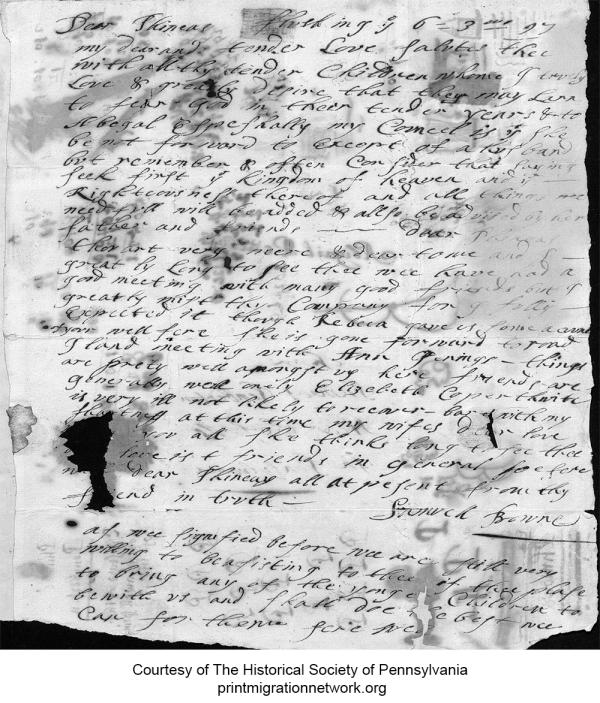 Dear Phineas flushing ye 6 = 3 mo 97
my dear and tender Love salutes thee
with all thy tender Children whome I truly
Love & greatly desire that they may Larn
to fear God in theer tender years & to
Abegal Espeshally my Councel is yt she
be not forward to Except of a husband
but remember & often Consider that saying
seek first ye kingdom of heaven and ye
Righteousness thereof and all things we
need will be added & allso be advised by her
father and friends — Dear
thou art very neere & dear to me and I
greatly Long to see thee wee have had a
good meeting with many good friends but I
greatly mist thy Company for I
Expected it though Rebeca gave us some account
of your wellfare she is gone forward to road
I land meeting with Ann — things
are prety well amongst us here friends are
generally well only Elizabeth Copertwaite
is very ill not likely to recover — bare with my
at this time my wifes dear love
you all she thinks long to see thee
love is to friends in General
dear Phineas all at present from thy
friend in truth —
Samuell Bowne
as wee signified before wee are still very
willing to be asisting to thee if thee plase
to bring any of the yonge Children to
be with us and shall doe the best wee
Can for them
Courtesy of The Historical Society of Pennsylvania
printmigrationnetwork.org